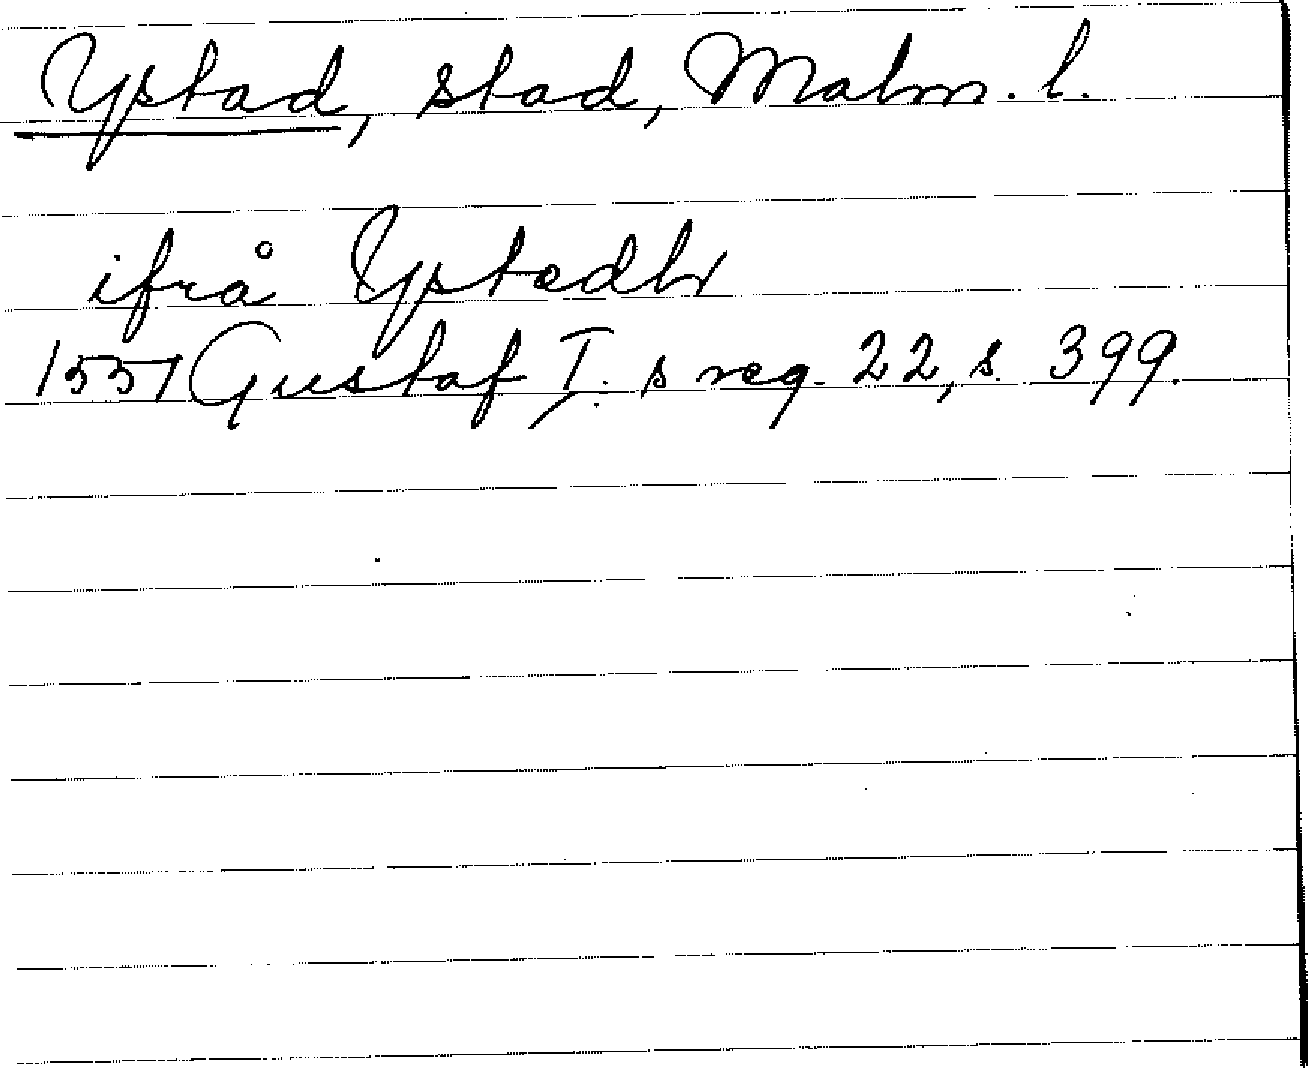 Ystad, stad, Malm. l.
ifrå Ystedh
1551 Gustaf I. s reg. 22, s. 399.